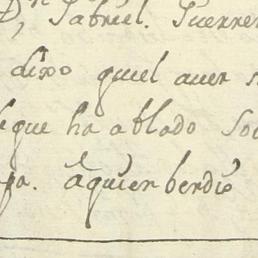 Dn, Gabriel. Guerrer
dixo quiel auer s
eque ha ablado so
pa. aquien berdió